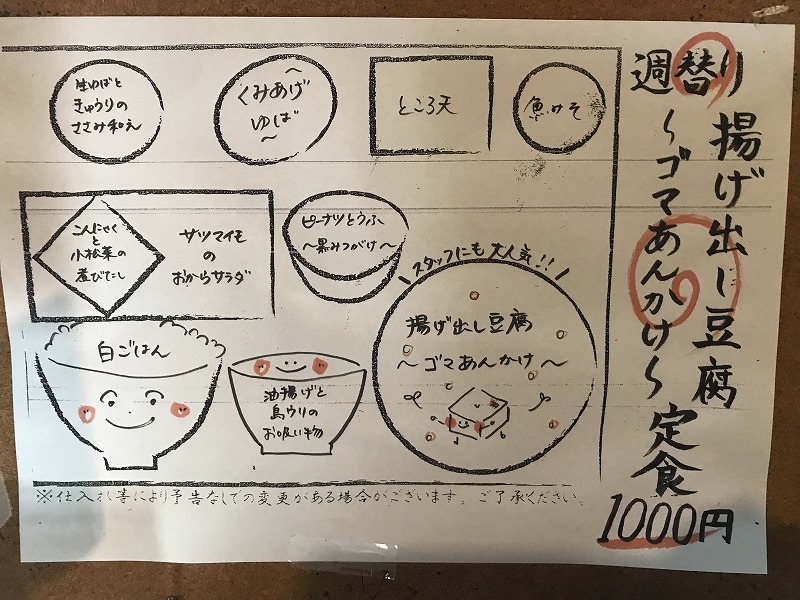 週替り
揚げ出し豆腐
〜ゴマあんかけ〜
定食
1000円
生ゆばと
きゅうりの
ささみ和え
〜
くみあげ
ゆば
〜
ところ天
魚みそ
こんにゃく
と
小松菜の
煮びたし
サツマイモ
の
おからサラダ
ピーナツとうふ
〜黒みつがけ〜
スタッフにも大人気!!
揚げ出し豆腐
〜ゴマあんかけ〜
白ごはん
油揚げと
島ウリの
お吸い物
※仕入れ等により予告なしでの変更がある場合がございます。ご了承ください。